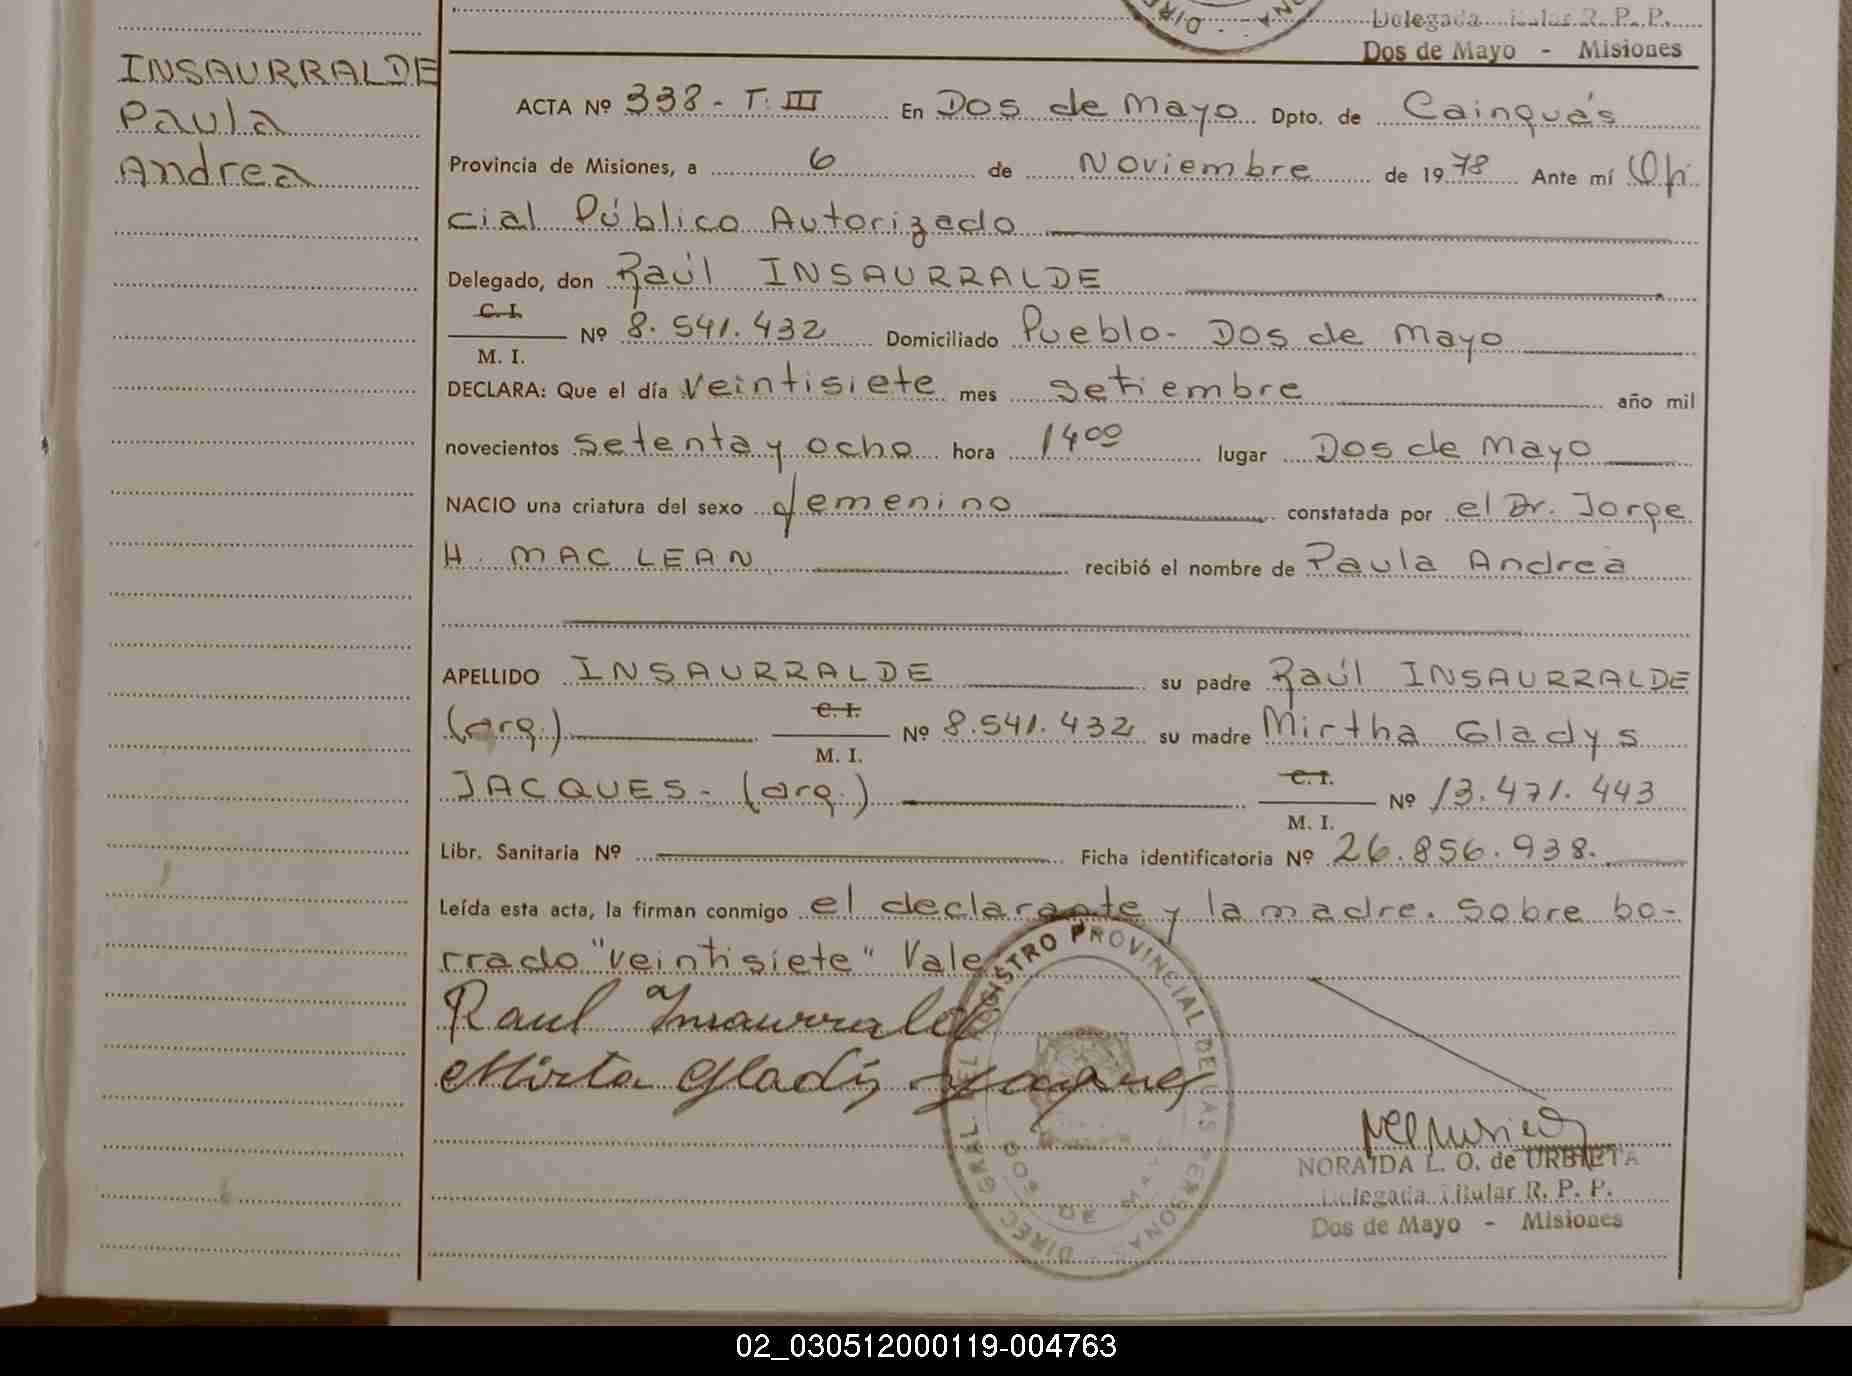 Delegada Titular R. P. P.
Dos de Mayo - Misiones
INSAURRALDE
Paula
Andrea
ACTA Nº 338 - T. III En Dos de Mayo Dpto. de Cainguás
Provincia de Misiones, a 6 de Noviembre de 1978 Ante mí Ofi
cial Público Autorizado
Delegado, don Raúl INSAURRALDE
C. I.
M. I. Nº 8.541.432 Domiciliado Pueblo - Dos de Mayo
DECLARA: Que el día veintisiete mes setiembre año mil
novecientos setenta y ocho hora 14 00 lugar Dos de Mayo
NACIO una criatura del sexo femenino constatada por el Dr. Jorge
H. MAC LEAN recibió el nombre de Paula Andrea
APELLIDO INSAURRALDE su padre Raúl INSAURRALDE
(arg.) C. I. M. I. Nº 8.541.432 su madre Mirtha Gladys
JACQUES - (arg.) C. I. M. I. Nº 13.471.443
Libr. Sanitaria Nº Ficha identificatoria Nº 26.856.938.
Leída esta acta, la firman conmigo el declarante y la madre. Sobre bo-
rrado "veintisiete" Vale
Raul Insaurralde
Mirta Gladis Jacques
DIREC. GRAL. DEL REGISTRO PROVINCIAL DE LAS PERSONAS
DOS DE MAYO
NORAIDA L. O. de URBIETA
Delegada Titular R. P. P.
Dos de Mayo - Misiones
02_030512000119-004763